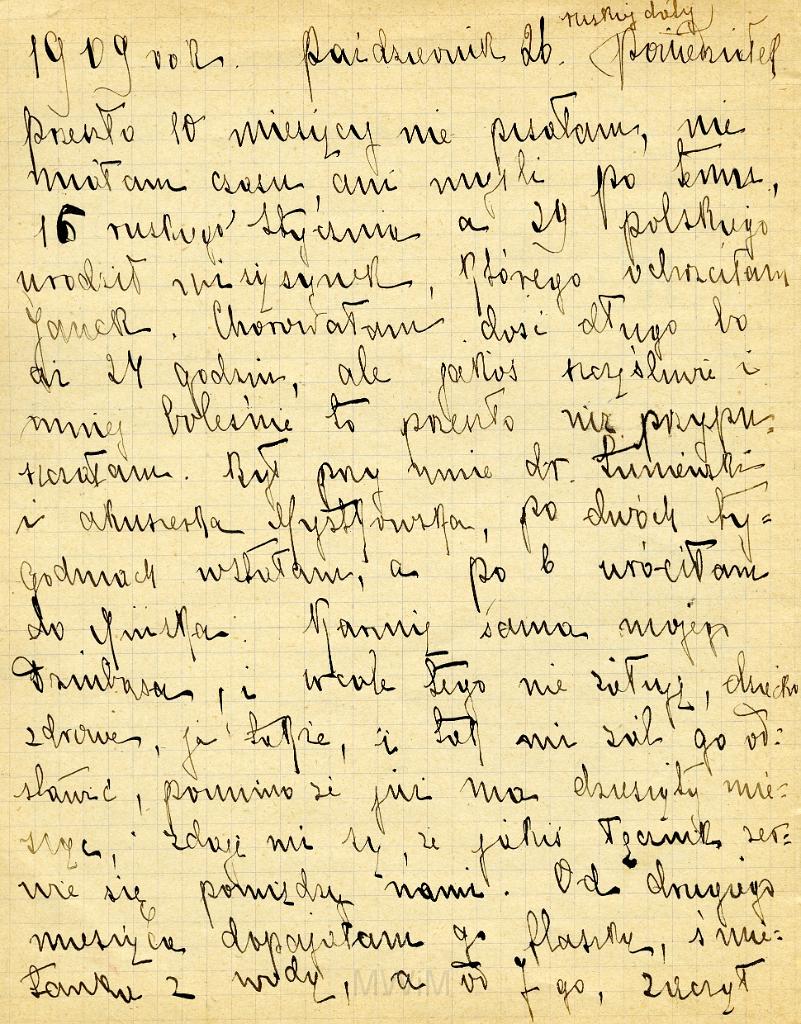 ruskiej daty
1909 rok. Październik 26. (Poniedziałek
Przeszło 10 miesięcy nie pisałam, nie
miałam czasu, ani myśli po temu,
16 ruskiego Stycznia a 29 polskiego
urodził mi się synek, którego ochrzciłam
Janek. Chorowałam dosć długo bo
aż 24 godzin, ale jakoś szczęśliwie i
mniej boleśnie to przeszło niż przypu-
szczałam. Był przy mnie dr. Łuniewski
i akuszerka Mystkowska, po dwóch ty=
godniach wstałam, a po 6 wróciłam
do Mińska. Karmię sama mojego
Dzimbasa, i wcale tego nie żałuję, dziecko
zdrowe, ja także, i tak mi żal go od=
stawić, pomimo że już ma dziesięty mie=
siąc, zdaje mi się, że jakiś łącznik zer=
wie się pomiędzy nami. Od drugiego
miesiąca dopajałam go flaszką, śmie=
tanką z wodą, a od 7 go, zaczął
MWiM